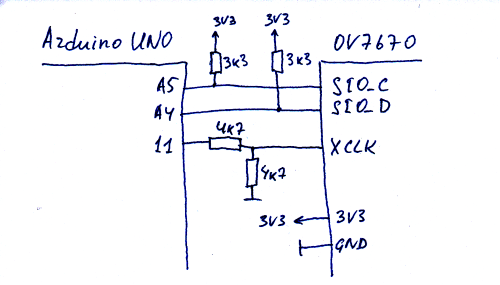 3V3 3V3
Arduino UNO OV7670
3K3 3K3
A5 SIO_C
A4 SIO_D
4K7
11 XCLK
4K7
3V3 3V3
GND